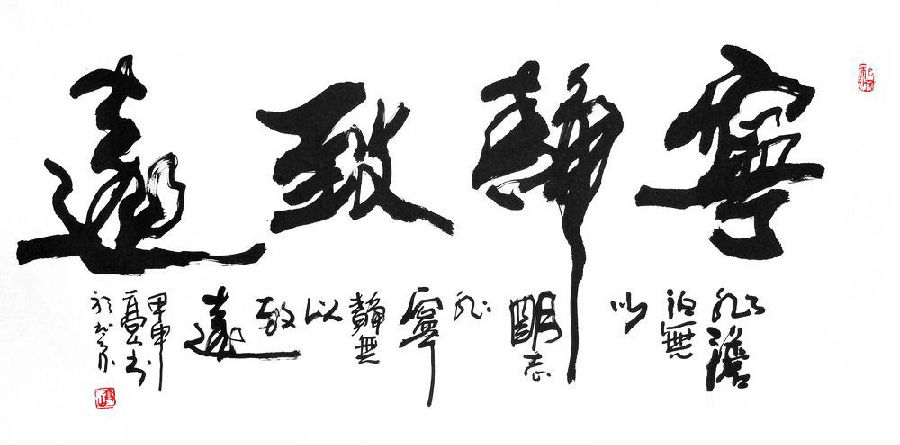 寧靜致遠
非澹
泊無
以
明志
非
寧
靜無
以
致
遠
甲申